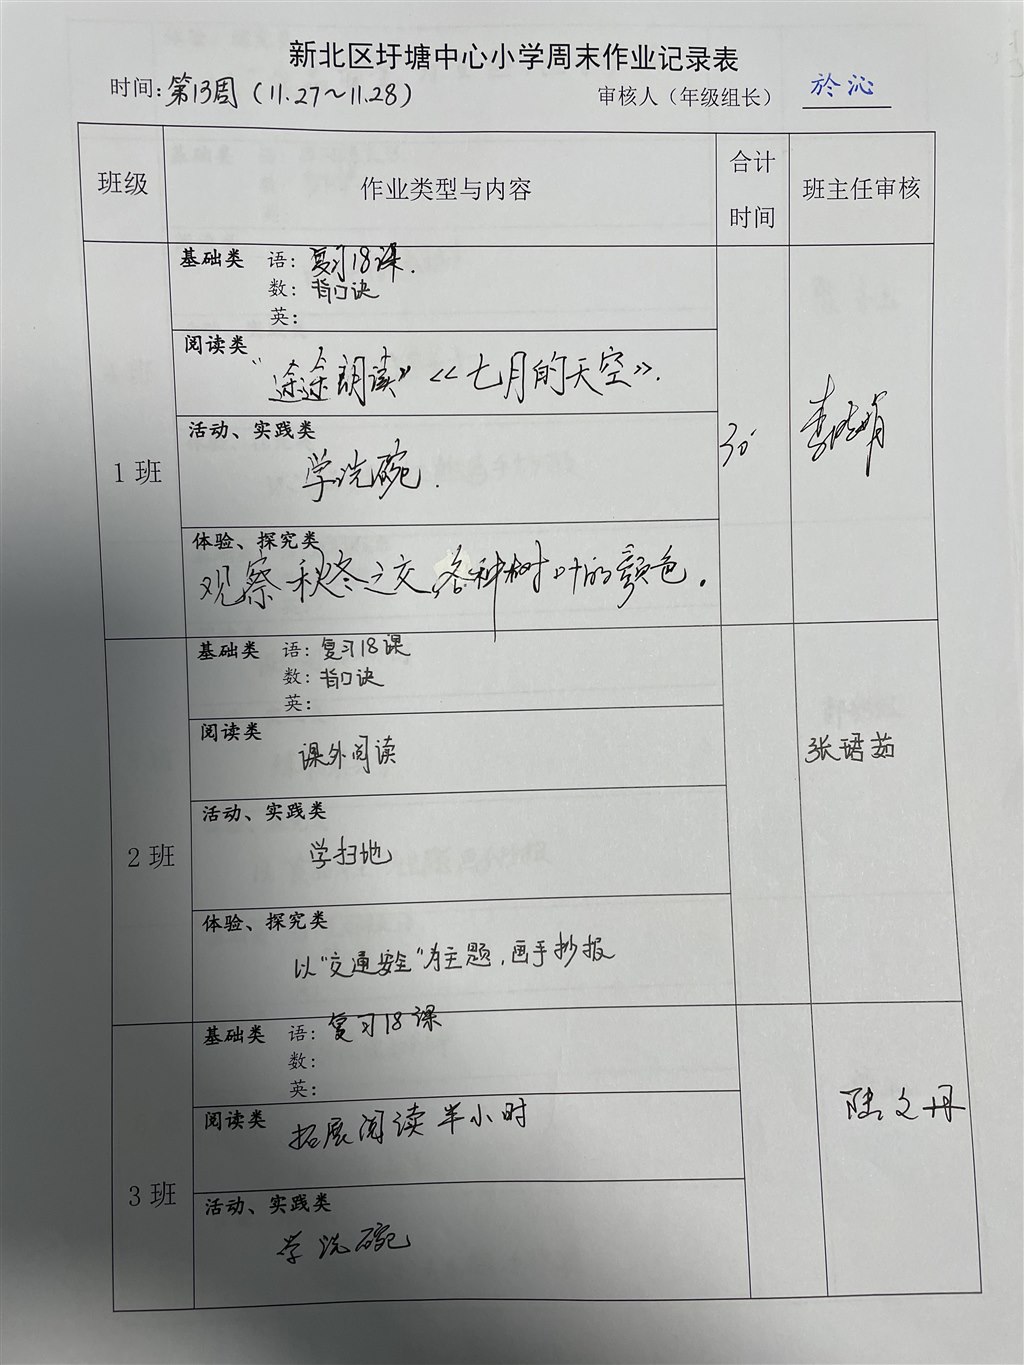 新北区圩塘中心小学周末作业记录表
时间:第13周(11.27~11.28) 审核人(年级组长) 於沁
班级 作业类型与内容 合计时间 班主任审核
1班
基础类 语:复习18课.
数:背口诀
英:
阅读类
"途途朗读"《七月的天空》.
活动、实践类
学洗碗.
30'
体验、探究类
观察秋冬之交,各种树叶的颜色.
2班
基础类 语:复习18课
数:背口诀
英:
阅读类
课外阅读
张珺茹
活动、实践类
学扫地
体验、探究类
以"交通安全"为主题,画手抄报
3班
基础类 语:复习18课
数:
英:
阅读类
拓展阅读半小时
陆文丹
活动、实践类
学洗碗